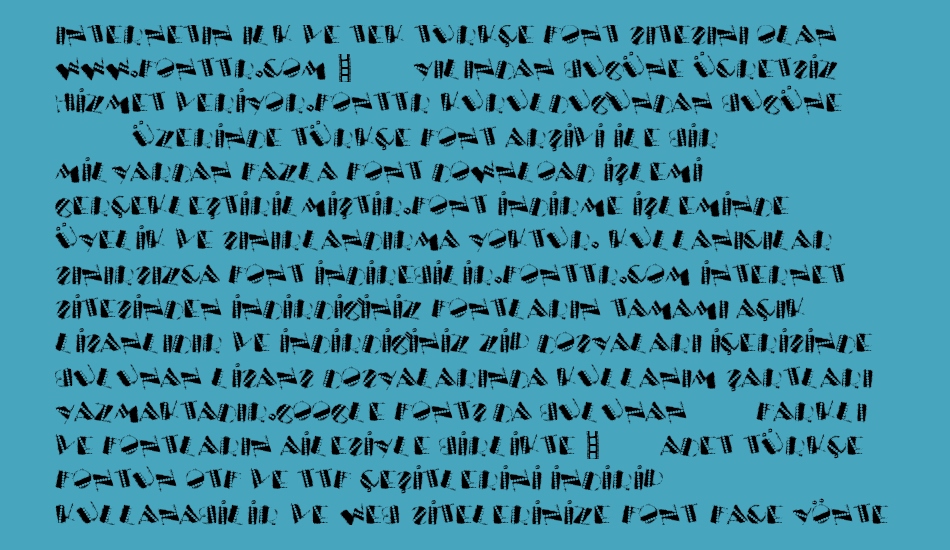 INTERNETIN ILK VE TEK TÜRKÇE FONT SITESINI OLAN
WWW.FONTTR.COM YILINDAN BUGÜNE ÜCRETSİZ
HİZMET VERİYOR.FONTTR KURULDUĞUNDAN BUGÜNE
ÜZERİNDE TÜRKÇE FONT ARŞİVİ İLE BİR
MİLYARDAN FAZLA FONT DOWNLOAD İŞLEMİ
GERÇEKLEŞTİRİLMİŞTİR.FONT İNDİRME İŞLEMİNDE
ÜYELİK VE SINIRLANDIRMA YOKTUR. KULLANICILAR
SINIRSIZCA FONT İNDİREBİLİR.FONTTR.COM İNTERNET
SİTESİNDEN İNDİRDİĞİNİZ FONTLARIN TAMAMI AÇIK
LİSANLIDIR VE İNDİRDİĞİNİZ ZIP DOSYALARI İÇERİSİNDE
BULUNAN LİSANS DOSYALARINDA KULLANIM ŞARTLARI
YAZMAKTADIR.GOOGLE FONTS DA BULUNAN FARKLI
VE FONTLARIN AİLESİYLE BİRLİKTE ADET TÜRKÇE
FONTUN OTF VE TTF ÇEŞİTLERİNİ İNDİRİP
KULLANABİLİR VE WEB SİTELERİNİZE FONT FACE YÖNTE